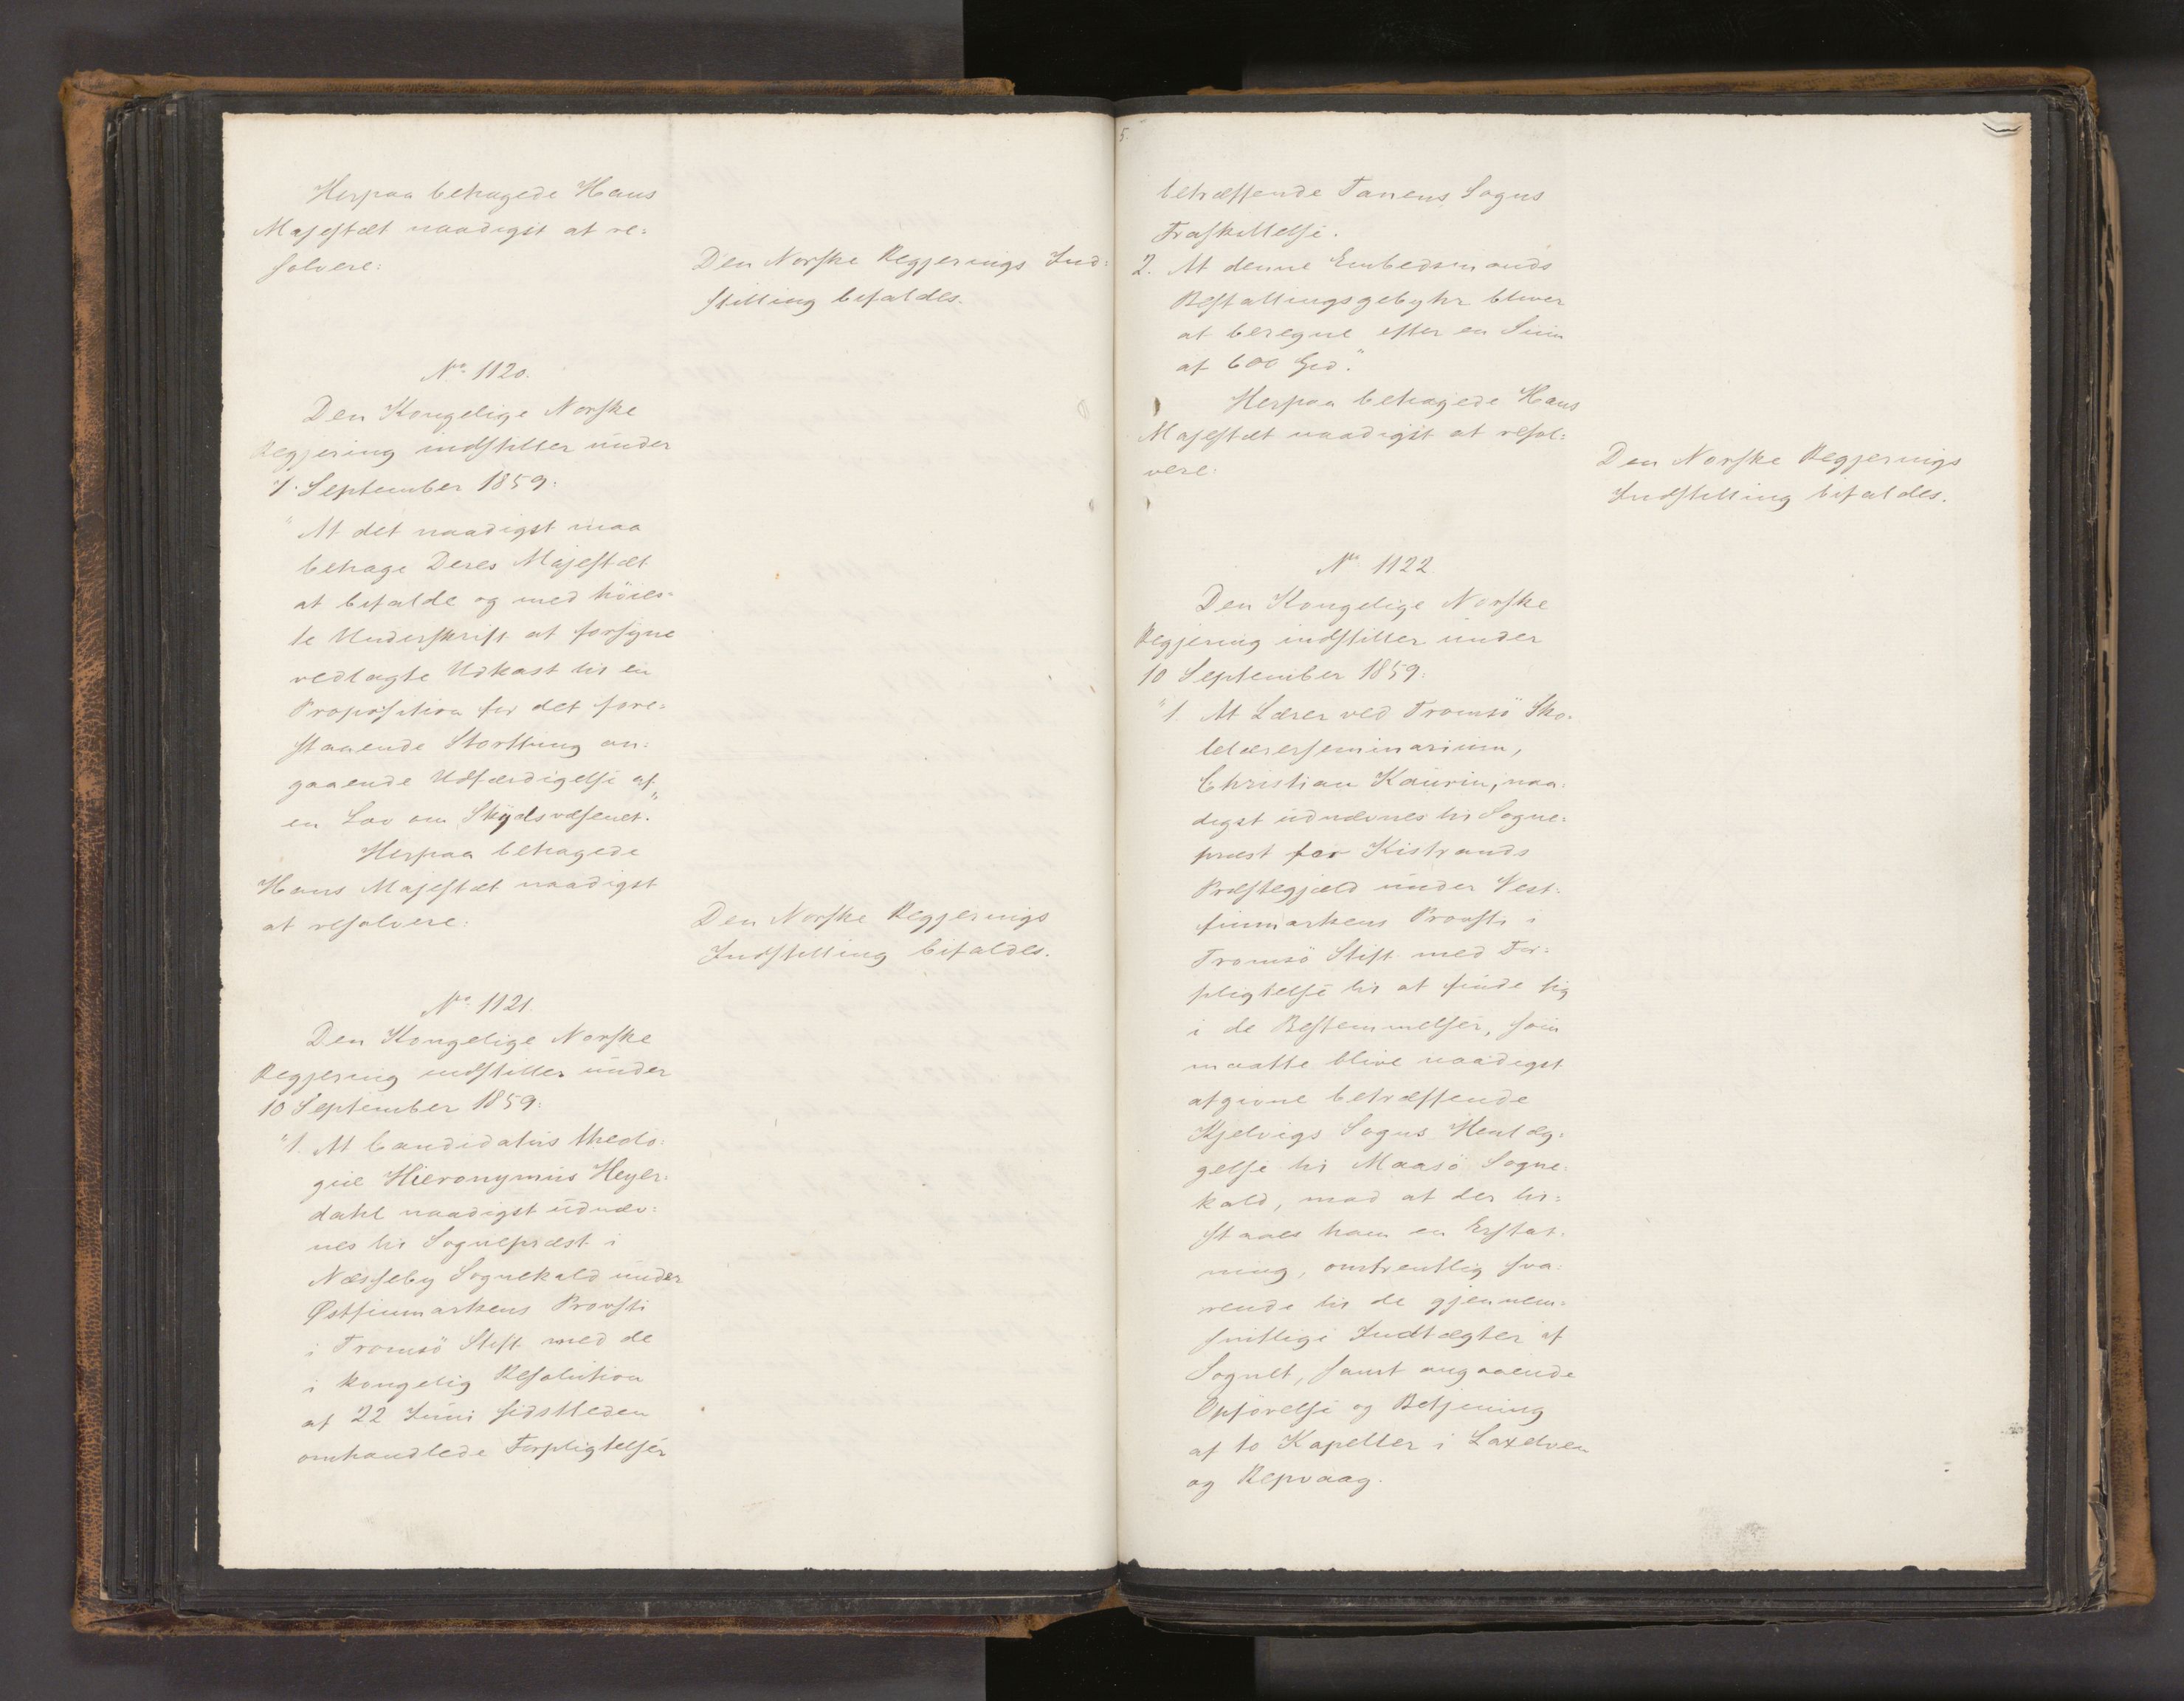 Herpaa behagede Hans
Majestæt naadigst at re=
solvere:
Den Norske Regjerings Ind=
stilling bifaldes.
No. 1120.
Den Kongelige Norske
Regjering indstiller under
1. September 1859:
"At det naadigst maa
behage Deres Majestæt
at bifalde og med höies=
te Underskrift at forsyne
vedlagte Udkast til en
Proposition for det fore=
staaende Storthing an=
gaaende Udfærdigelse af
en Lov om Skydsvæsenet."
Herpaa behagede
Hans Majestæt naadigst
at resolvere:
Den Norske Regjerings
Indstilling bifaldes.
No. 1121.
Den Kongelige Norske
Regjering indstiller under
10 September 1859:
"1. At Candidatus theolo=
giæ Hieronymus Heyer=
dahl naadigst udnæv=
nes til Sognepræst i
Næsseby Sognekald under
Østfinmarkens Provsti
i Tromsö Stift med de
i kongelig Resolution
af 22 Juni sidstleden
omhandlede Forpligtelser
5.
betræffende Tanens Sogns
Fraskillelse.
2. At denne Embedsmands
Bestallingsgebyhr bliver
at beregne efter en Sum
af 600 Spd."
Herpaa behagede Hans
Majestæt naadigst at resol=
vere:
Den Norske Regjerings
Indstilling bifaldes.
No. 1122
Den Kongelige Norske
Regjering indstiller under
10 September 1859:
"1. At Lærer ved Tromsö Sko=
lelærerseminarium,
Christian Kaurin, naa=
digst udnævnes til Sogne=
præst for Kistrands
Præstegjæld under Vest=
finmarkens Provsti i
Tromsö Stift med For=
pligtelse til at finde sig
i de Bestemmelser, som
maatte blive naadigst
afgivne betræffende
Kjelvigs Sogns Henlæg=
gelse til Maasö Sogne=
kald, mod at der til=
staaes ham en Erstat=
ning, omtrentlig sva=
rende til de gjennem=
snitlige Indtægter af
Sognet, samt angaaende
Opförelse og Betjening
af to Kapeller i Laxelven
og Repvaag.